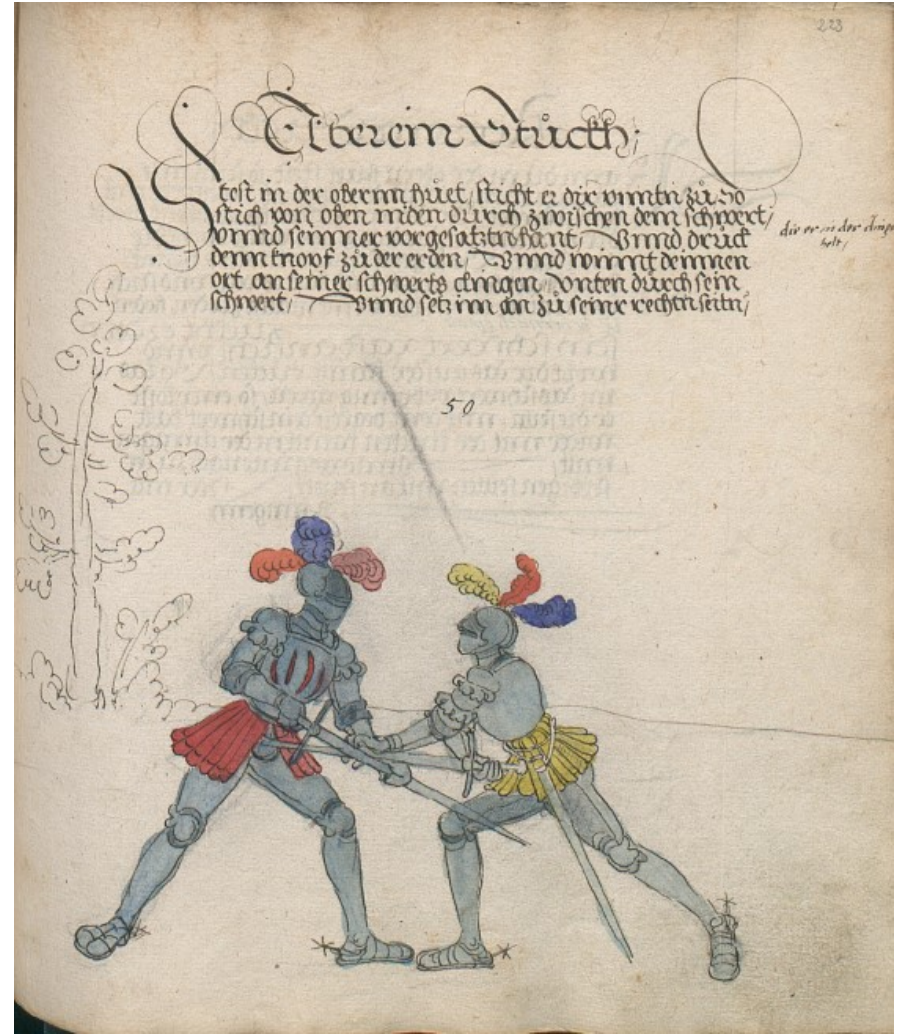 223
Aber ein Stuckh;
Stest in der obernn huet, sticht er dir vnntn zů, So
stich von oben niden durch zwischen dem schwert,
vnnd seinner vorgesatztn hant, Vnnd druck
denn knopf zů der erden, Vnnd winnt deinnen
ort an seiner schwerts clingen, vnten durch sein
schwert, Vnnd setz im an zů seinr rechtn seitn,
die er in der clinge
helt,
50